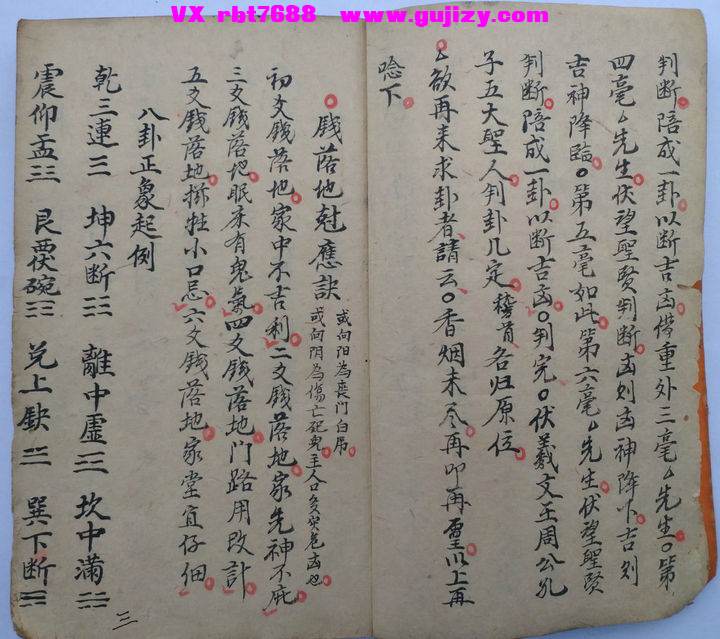 VX rbt7688 www.gujizy.com
判断陪成一卦以断吉凶俻重外三毫厶先生第
四毫厶先生伏望聖賢判断凶則凶神降下吉則
吉神降臨第五毫如此第六毫厶先生伏望聖賢
判断陪成一卦以断吉凶判完伏羲文王周公孔
子五大聖人判卦几定稽首各归原位
厶欲再来求卦者請云香烟未尽再叩再灵以上再
唸下
錢落地尅應訣 或向阳為喪門白吊
或向阴為傷亡死鬼主人口災危凶也
初爻錢落地家中不吉利二爻錢落地家先神不庇
三爻錢落地眠床有鬼氣四爻錢落地門路用改計
五爻錢落地牲小口忌六爻錢落地家堂宜仔细
八卦正象起例
乾三連☰ 坤六断☷ 離中虚☲ 坎中滿☵
震仰盂☳ 艮覆碗☶ 兑上缺☱ 巽下断☴
三